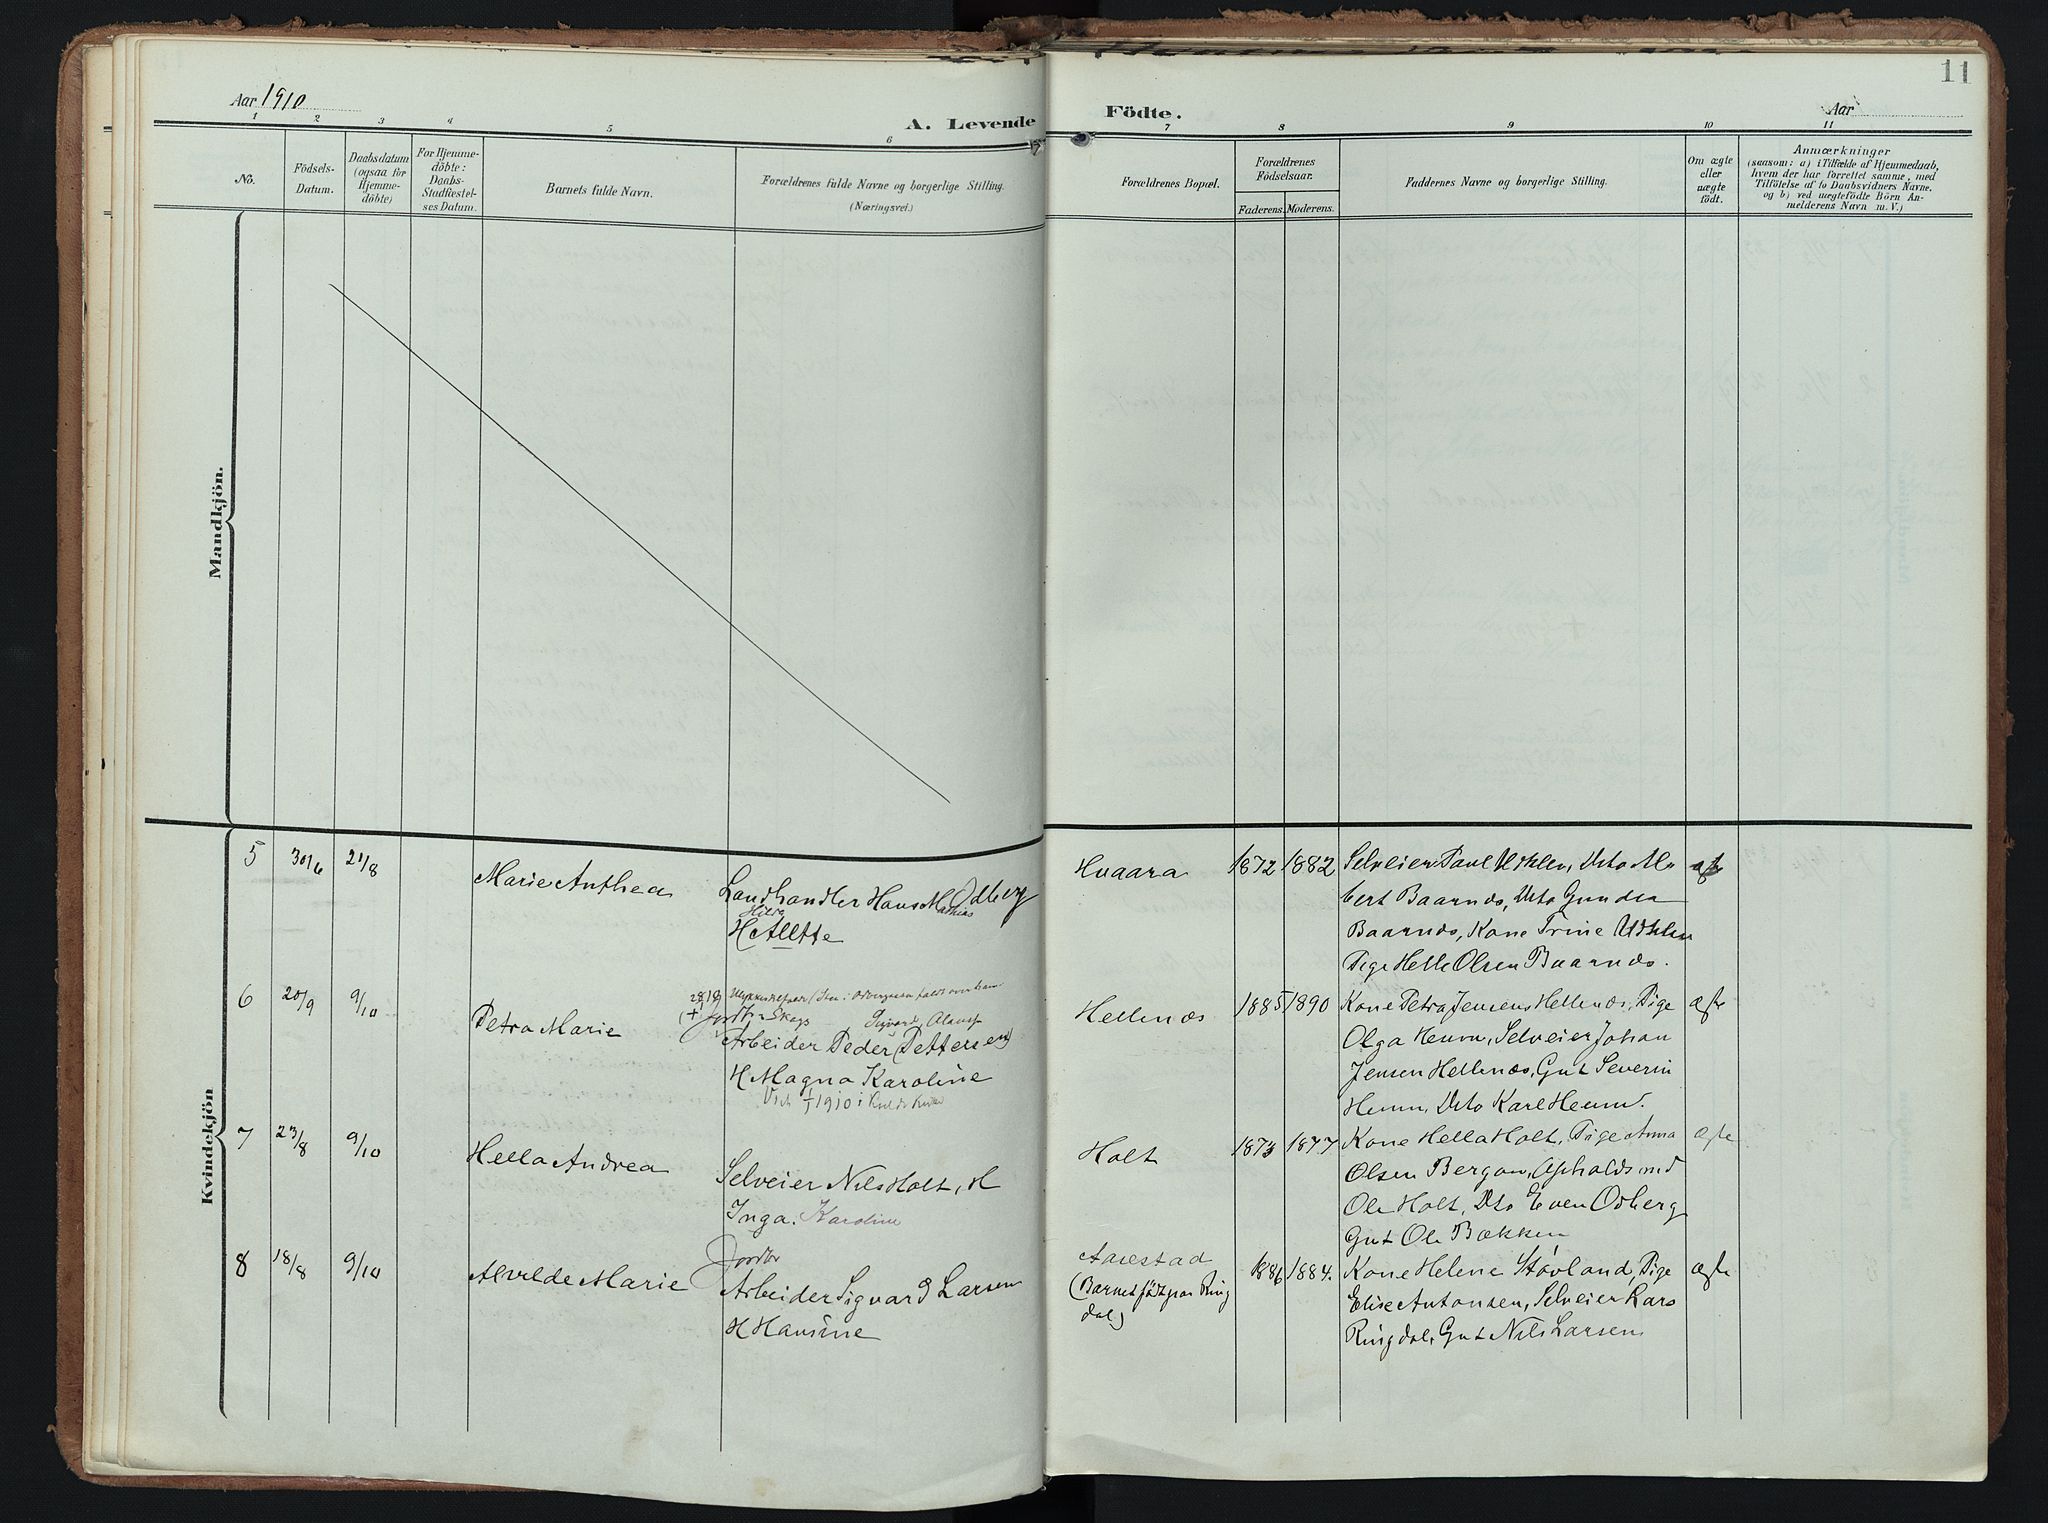 11
Aar 1910
A. Levende
Födte.
Aar
1 2 3 4 5 6 7 8 9 10 11
No.
Födsels-
Datum.
Daabsdatum
(ogsaa for
Hjemme-
döbte)
For Hjemme-
döbte:
Daabs-
Stadfæstel-
ses Datum.
Barnets fulde Navn.
Forældrenes fulde Navne og borgerlige Stilling.
(Næringsvei.)
Forældrenes Bopæl.
Forældrenes
Födselsaar.
Faderens. Moderens.
Faddernes Navne og borgerlige Stilling.
Om ægte
eller
uægte
födt.
Anmærkninger
(saasom: a) i Tilfælde af Hjemmedaab,
hvem der har forrettet samme, med
Tilföielse af to Daabsvidners Navne,
og b) ved uægtefödte Börn An-
melderens Navn m. V.)
Mandkjön.
Kvindekjön
5 30/6 21/8
Marie Anthea
Landhandler Hans Mathias Odberg
Hilda
H Alette
Hvaara
1872 1882
Selveier Paul Udklen, Dito
Baarnæs, Dito Gundea
Baarnæs, Kone Trine Udklen
Pige Helle Olsen Baarnæs.
6 20/9 9/10
Petra Marie
Sigvard
Arbeider Peder (Pettersen)
H Magna Karoline
† 1910 i
Hellenæs
1885 1890
Kone Petra Jensen Hellenæs, Pige
Olga Heum, Selveier Johan
Jensen Hellenæs, Gut Severin
Heum, Dito Karl Heum.
ægte
7 23/8 9/10
Hella Andrea
Selveier Nils Holt, H
Inga. Karoline
Holt
1873 1877
Kone Hella Holt, Pige Anna
Olsen Bergan, Afholdsmd
Ole Holt, Dto Even Odberg
Gut Ole Bækken
ægte
8 18/8 9/10
Alvilde Marie
Jordbr
Arbeider Sigvard Larsen
H Hansine
Aarestad
(Barnet födt paa Ring
dal)
1886 1884.
Kone Helene Støvland, Pige
Elise Antonsen, Selveier Lars
Ringdal, Gut Nils Larsen
ægte